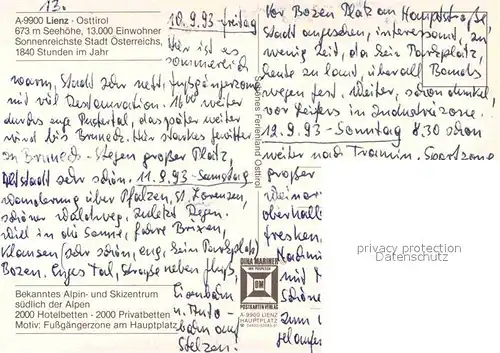 13.
A-9900 Lienz · Osttirol
673 m Seehöhe, 13.000 Einwohner
Sonnenreichste Stadt Österreichs,
1840 Stunden im Jahr
10.9.93 - freitag
Hier ist es
sommerlich
warm, Stadt sehr nett, fußgängerzone
mit viel Restauration. 16⁰⁰ weiter
durchs enge Pustertal, das später weiter
wird bis Bruneck. Hier starkes fewitter
in Bruneck - Stegen großer Platz,
Altstadt sehr schön. 11.9.93 - Samstag
wanderung über Pfalzen, St. Lorenzen,
schöner waldweg. zuletzt Regen.
will in die Sonne, fahre Brixen,
Klausen (sehr schön, eng, kein Parkplatz)
Bozen. Enges Tal, Straße neben fluß,
Eisenbahn
u. Auto-
bahn auf
Stelzen.
Bekanntes Alpin- und Skizentrum
südlich der Alpen
2000 Hotelbetten - 2000 Privatbetten
Motiv: Fußgängerzone am Hauptplatz
Schönes Ferienland Osttirol
DINA MARINER
DM
POSTKARTENVERLAG
A-9900 LIENZ
HAUPTPLATZ
Vor Bozen Platz an Hauptstraße
Stadt angesehen, interessant, zu
wenig Zeit, da kein Parkplatz,
heute zu laut, überall Bands
wegen fest. weiter, schon dunkel,
vor Leifers in Industriezone.
12.9.93 - Sonntag 8.30 schon
weiter nach Tramin.
großer
weinor
oberhalb
fresken
Nachmi
mit
schöne
zum
gelaufe
privacy protection
Datenschutz